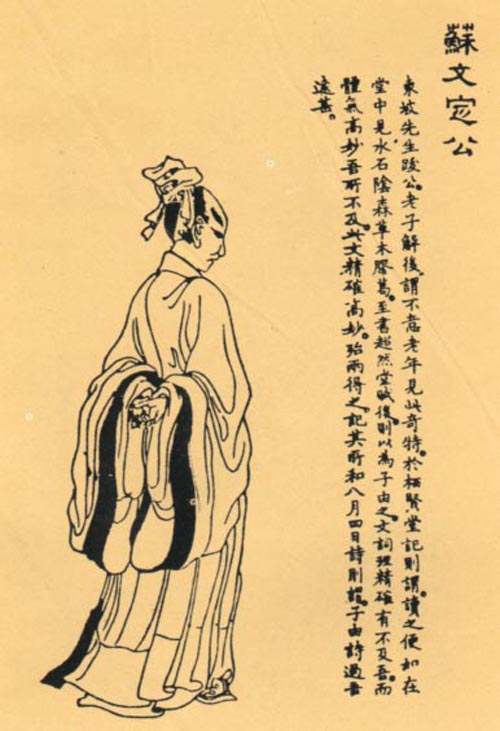 蘇文定公
東坡先生跋公老子解後。謂不意老年見此奇特。於栖賢堂記則謂。讀之便如在
堂中見水石陰森草木膠葛。至書超然堂賦後。則以為子由之文詞理精確有不及吾。而
體氣高妙吾所不及。此文精確高妙。殆兩得之。記其所和八月四日詩則謂。子由詩過吾
遠甚。